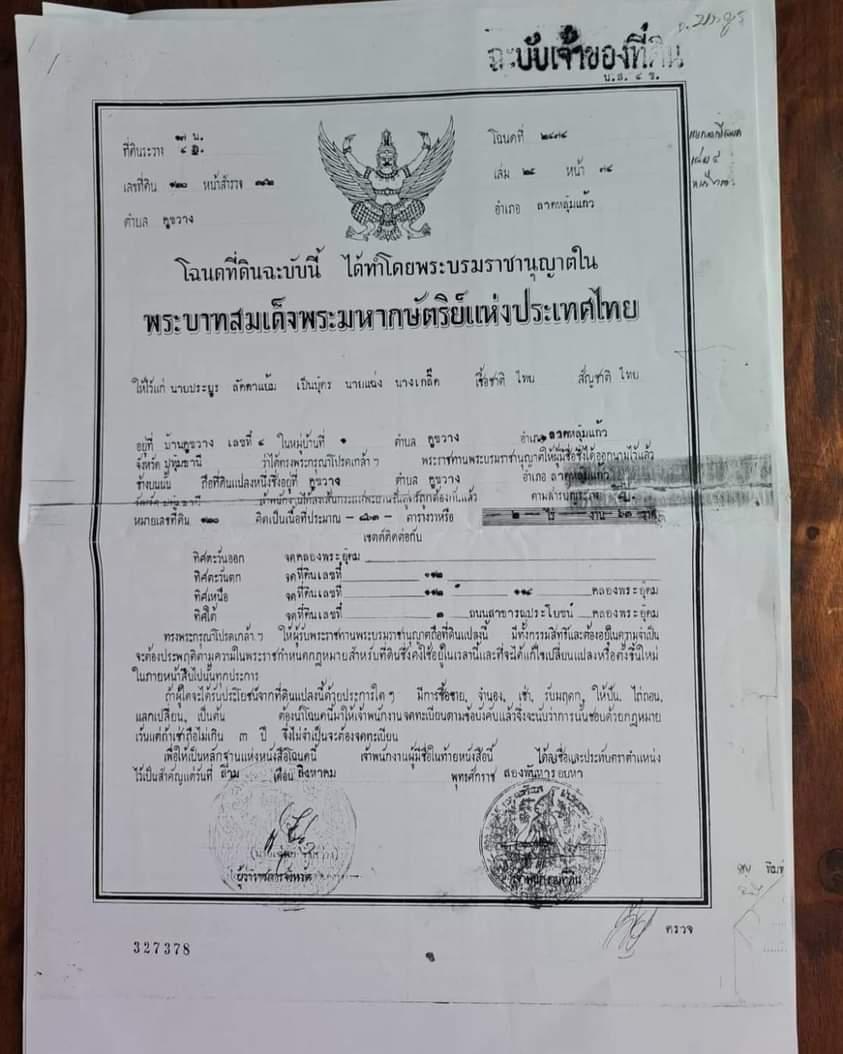 ฉะบับเจ้าของที่ดิน
น.ส. ๔ ข.
ที่ดินระวาง ๑๗ น. ๔ อ.
โฉนดที่ ๒๔๗๔
เลขที่ดิน ๑๒๐ หน้าสำรวจ ๓๗๒
เล่ม ๒๕ หน้า ๗๔
ตำบล คูขวาง
อำเภอ ลาดหลุมแก้ว
โฉนดที่ดินฉะบับนี้ ได้ทำโดยพระบรมราชานุญาตใน
พระบาทสมเด็จพระมหากษัตริย์แห่งประเทศไทย
ให้ไว้แก่ นายประยูร เป็นบุตร นายแฉ่ง นางเกลี้ย เชื้อชาติ ไทย สัญชาติ ไทย
อยู่ที่ บ้านคูขวาง เลขที่ ๔ ในหมู่บ้านที่ ๑ ตำบล คูขวาง อำเภอ ลาดหลุมแก้ว
จังหวัด ปทุมธานี ว่าได้ทรงพระกรุณาโปรดเกล้า ฯ พระราชทานพระบรมราชานุญาตให้ผู้มีชื่อซึ่งได้ออกนามไว้แล้ว
ข้างบนนั้น ถือที่ดินแปลงหนึ่งซึ่งอยู่ที่ คูขวาง ตำบล คูขวาง อำเภอ ลาดหลุมแก้ว
หมายเลขที่ดิน ๑๒๐ คิดเป็นเนื้อที่ประมาณ ตารางวาหรือ – ๒ – ไร่ – งาน ๖๓ วา
เขตต์ติดต่อกับ
ทิศตะวันออก จดคลองพระอุดม
ทิศตะวันตก จดที่ดินเลขที่ ๑๑๒
ทิศเหนือ จดที่ดินเลขที่ ๑๑๒ ๑๑๔ คลองพระอุดม
ทิศใต้ จดที่ดินเลขที่ ๓ ถนนสาธารณประโยชน์ คลองพระอุดม
ทรงพระกรุณาโปรดเกล้า ฯ ให้ผู้รับพระราชทานพระบรมราชานุญาตถือที่ดินแปลงนี้ มีทั้งกรรมสิทธิ์และต้องอยู่ในความจำเป็น
จะต้องประพฤติตามความในพระราชกำหนดกฎหมายสำหรับที่ดินซึ่งคงใช้อยู่ในเวลานี้และที่จะได้แก้ไขเปลี่ยนแปลงหรือตั้งขึ้นใหม่
ในภายหน้าสืบไปนั้นทุกประการ
ถ้าผู้ใดจะได้รับประโยชน์จากที่ดินแปลงนี้ด้วยประการใด ๆ มีการซื้อขาย, จำนอง, เช่า, รับมฤดก, ให้ปัน, ไถ่ถอน,
แลกเปลี่ยน, เป็นต้น ต้องนำโฉนดนี้มาให้เจ้าพนักงานจดทะเบียนตามข้อบังคับแล้วจึ่งจะนับว่าการนั้นชอบด้วยกฎหมาย
เว้นแต่ถ้าเช่าถือไม่เกิน ๓ ปี จึ่งไม่จำเป็นจะต้องจดทะเบียน
เพื่อให้เป็นหลักฐานแห่งหนังสือโฉนดนี้ เจ้าพนักงานผู้มีชื่อในท้ายหนังสือนี้ ได้ลงชื่อและประทับตราตำแหน่ง
ไว้เป็นสำคัญแต่วันที่ สาม เดือน สิงหาคม พุทธศักราช สองพันห้าร้อยห้า
ผู้ว่าราชการจังหวัด
เจ้าพนักงานที่ดิน
ตรวจ
327378